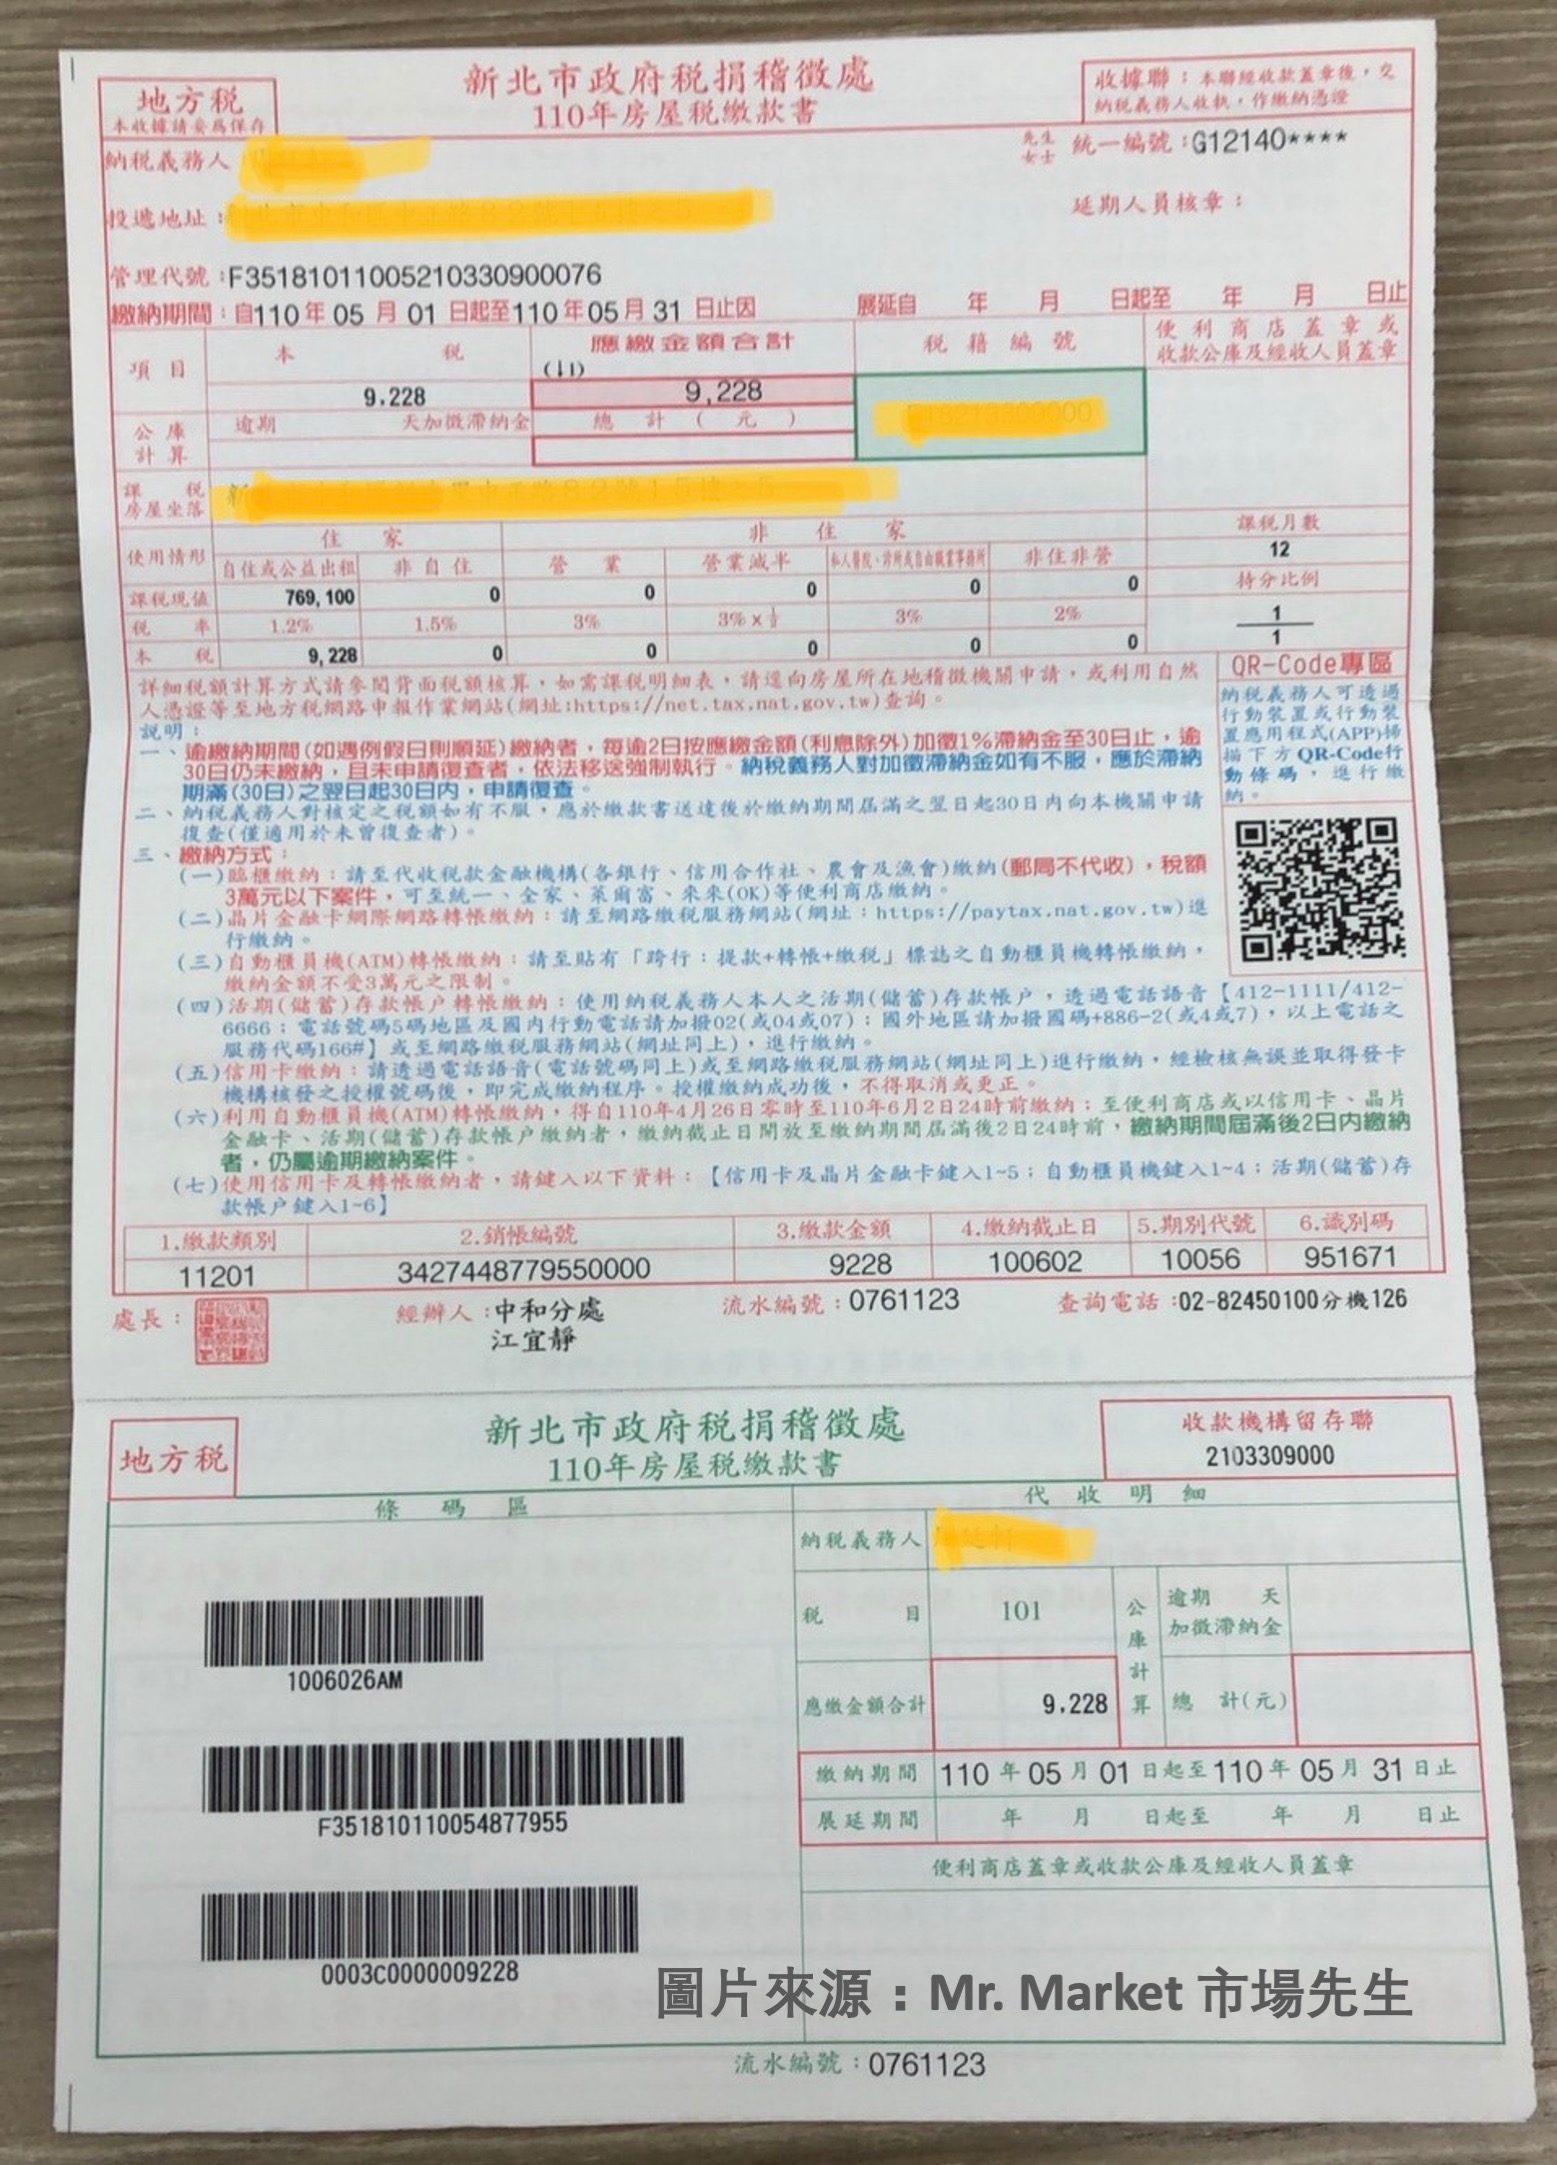 新北市政府稅捐稽徵處
110年房屋稅繳款書
地方稅
本收據請妥為保存
收據聯：本聯經收款蓋章後，交
納稅義務人收執，作繳納憑證
納稅義務人
先生
女士
統一編號：G12140****
投遞地址：
延期人員核章：
管理代號：F35181011005210330900076
繳納期間：自110年05月01日起至110年05月31日止因 展延自 年 月 日起至 年 月 日止
項目 本 稅 應繳金額合計 稅籍編號 便利商店蓋章或
收款公庫及經收人員蓋章
(↓1)
9,228 9,228
公庫
計算
逾期 天加徵滯納金 總 計 ( 元 )
課 稅
房屋坐落
使用情形 住 家 非 住 家 課稅月數
自住或公益出租 非自住 營業 營業減半 私人醫院、診所或自由職業事務所 非住非營 12
課稅現值 769,100 0 0 0 0 0 持分比例
稅率 1.2% 1.5% 3% 3%×½ 3% 2% 1
本稅 9,228 0 0 0 0 0 1
詳細稅額計算方式請參閱背面稅額核算，如需課稅明細表，請逕向房屋所在地稽徵機關申請，或利用自然
人憑證等至地方稅網路申報作業網站(網址:https://net.tax.nat.gov.tw)查詢。
QR-Code專區
納稅義務人可透過
行動裝置或行動裝
置應用程式(APP)掃
描下方QR-Code行
動條碼，進行繳
納。
說明：
一、逾繳納期間(如遇例假日則順延)繳納者，每逾2日按應繳金額(利息除外)加徵1%滯納金至30日止，逾
30日仍未繳納，且未申請復查者，依法移送強制執行。納稅義務人對加徵滯納金如有不服，應於滯納
期滿(30日)之翌日起30日內，申請復查。
二、納稅義務人對核定之稅額如有不服，應於繳款書送達後於繳納期間屆滿之翌日起30日內向本機關申請
復查(僅適用於未曾復查者)。
三、繳納方式：
(一)臨櫃繳納：請至代收稅款金融機構(各銀行、信用合作社、農會及漁會)繳納(郵局不代收)，稅額
3萬元以下案件，可至統一、全家、萊爾富、來來(OK)等便利商店繳納。
(二)晶片金融卡網際網路轉帳繳納：請至網路繳稅服務網站(網址：https://paytax.nat.gov.tw)進
行繳納。
(三)自動櫃員機(ATM)轉帳繳納：請至貼有「跨行：提款+轉帳+繳稅」標誌之自動櫃員機轉帳繳納，
繳納金額不受3萬元之限制。
(四)活期(儲蓄)存款帳戶轉帳繳納：使用納稅義務人本人之活期(儲蓄)存款帳戶，透過電話語音【412-1111/412-
6666；電話號碼5碼地區及國內行動電話請加撥02(或04或07)；國外地區請加撥國碼+886-2(或4或7)，以上電話之
服務代碼166#】或至網路繳稅服務網站(網址同上)，進行繳納。
(五)信用卡繳納：請透過電話語音(電話號碼同上)或至網路繳稅服務網站(網址同上)進行繳納，經檢核無誤並取得發卡
機構核發之授權號碼後，即完成繳納程序。授權繳納成功後，不得取消或更正。
(六)利用自動櫃員機(ATM)轉帳繳納，得自110年4月26日零時至110年6月2日24時前繳納；至便利商店或以信用卡、晶片
金融卡、活期(儲蓄)存款帳戶繳納者，繳納截止日開放至繳納期間屆滿後2日24時前，繳納期間屆滿後2日內繳納
者，仍屬逾期繳納案件。
(七)使用信用卡及轉帳繳納者，請鍵入以下資料：【信用卡及晶片金融卡鍵入1~5；自動櫃員機鍵入1~4；活期(儲蓄)存
款帳戶鍵入1~6】
1.繳款類別 2.銷帳編號 3.繳款金額 4.繳納截止日 5.期別代號 6.識別碼
11201 3427448779550000 9228 100602 10056 951671
處長： 經辦人：中和分處 流水編號：0761123 查詢電話：02-82450100分機126
江宜靜
新北市政府稅捐稽徵處
110年房屋稅繳款書
地方稅
收款機構留存聯
2103309000
條 碼 區 代 收 明 細
納稅義務人
稅 目 101 公庫計算 逾期 天
加徵滯納金
應繳金額合計 9,228 總 計(元)
繳納期間 110年05月01日起至110年05月31日止
展延期間 年 月 日起至 年 月 日止
便利商店蓋章或收款公庫及經收人員蓋章
1006026AM
F351810110054877955
0003C0000009228
圖片來源：Mr. Market 市場先生
流水編號：0761123